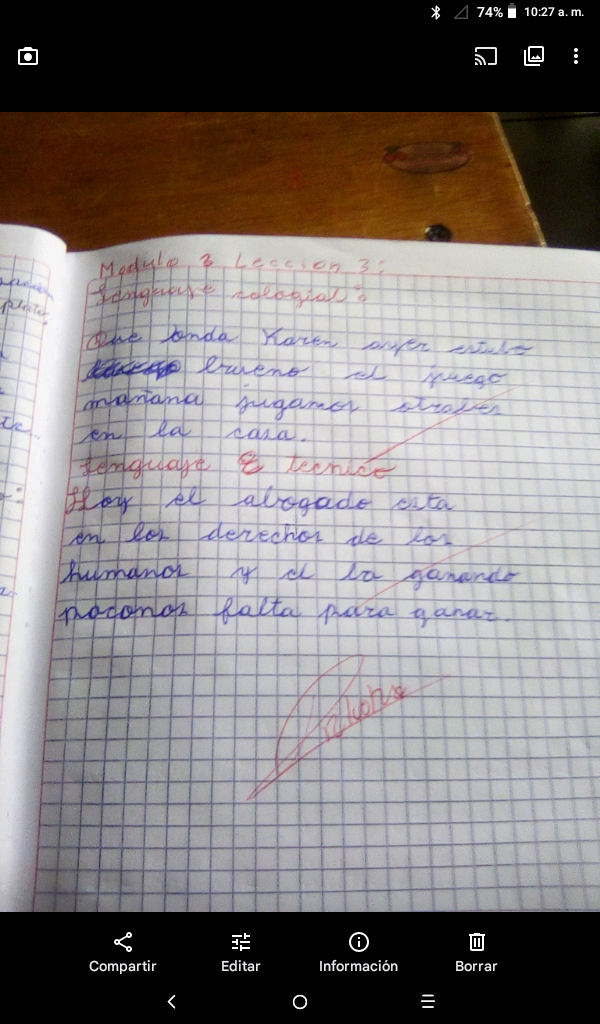 74% 10:27 a. m.
Modulo 2 Leccion 3:
Lenguaje cologial:
Que onda Karen ayer estubo
brueno el juego
mañana jugamos atraves
en la casa.
Lenguaje tecnico
Hoy el abogado esta
en los derechos de los
humanos y el la ganando
poconos falta para ganar.
Compartir Editar Información Borrar